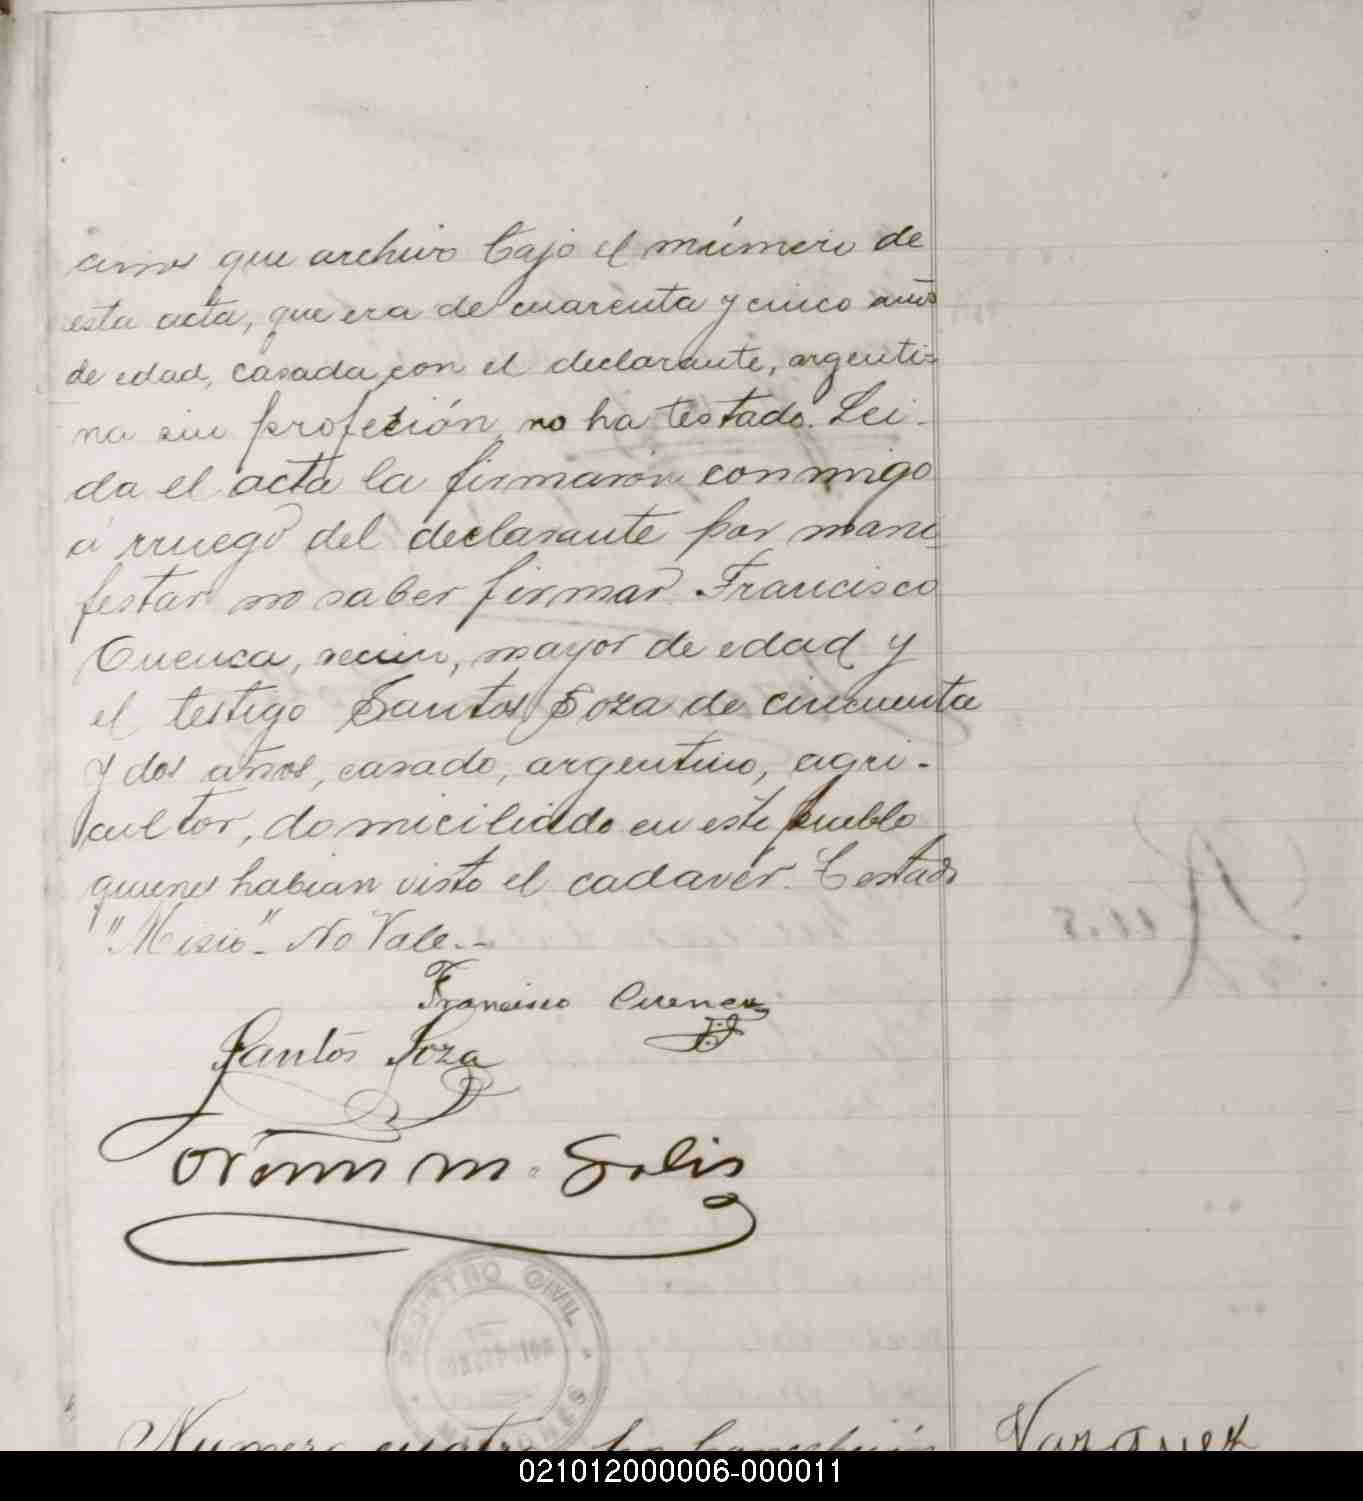 cinos que archivo bajo el número de
esta acta, que era de cuarenta y cinco años
de edad, casada con el declarante, argenti=
na sin profeción, no ha testado. Lei-
da el acta la firmaron conmigo
á rruego del declarante por mani
festar no saber firmar Francisco
Cuenca, vecino, mayor de edad y
el testigo Santos Soza de cincuenta
y dos años, casado, argentino, agri-
cultor, domiciliado en este pueblo
quienes habian visto el cadaver. Testado
"Misio"- No Vale.-
Francisco Cuenca
Santos Soza
M. Solis
REGISTRO CIVIL
MISIONES
Número cuatro Concepción
Vazquez
Ruiz
021012000006-000011